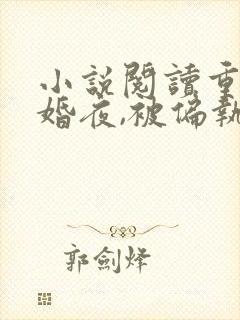 小說閱讀重
婚夜,被偏執
郭劍烽